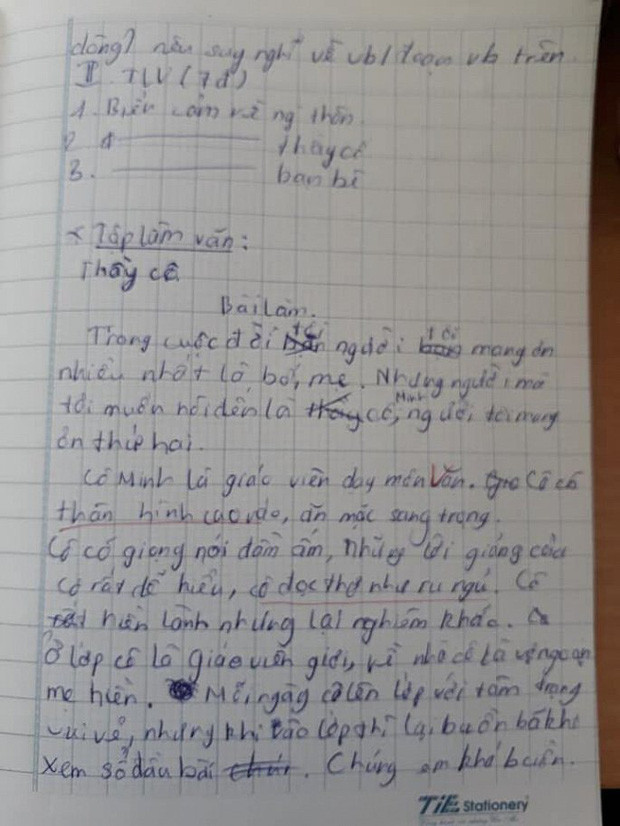 dòng) nêu suy nghĩ về vb/đoạn vb trên.
II TLV (7đ)
1. Biểu cảm về ng thân.
2. thầy cô
3. bạn bè
× Tập làm văn:
Thầy cô
Bài làm.
Trong cuộc đời tôi người tôi mang ơn
nhiều nhất là bố, mẹ. Nhưng người mà
tôi muốn nói đến là cô Minh, người tôi mang
ơn thứ hai.
Cô Minh là giáo viên dạy môn Văn. Cô có
thân hình cao ráo, ăn mặc sang trọng.
Cô có giọng nói đầm ấm, những lời giảng của
cô rất dễ hiểu, cô đọc thơ như ru ngủ. Cô
rất hiền lành nhưng lại nghiêm khắc.
Ở lớp cô là giáo viên giỏi, về nhà cô là vợ ngoan
mẹ hiền. Mỗi ngày cô lên lớp với tâm trạng
vui vẻ, nhưng khi vào lớp thì lại buồn bã khi
xem sổ đầu bài. Chúng em khá buồn.
TiE Stationery